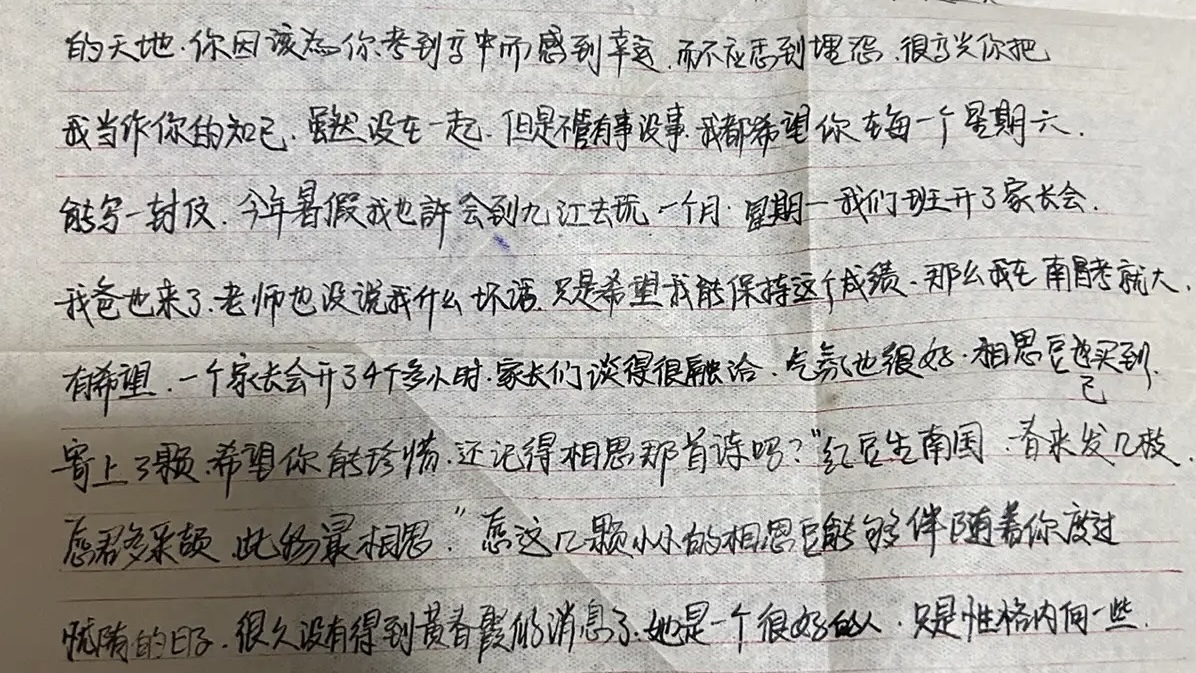 的天地.你因该为你考到高中而感到幸运.而不应感到埋怨.很高兴你把
我当作你的知己.虽然没在一起.但是不管有事没事.我都希望你在每一个星期六.
能写一封信.今年暑假我也許会到九江去玩一个月.星期一我们班开了家长会.
我爸也来了.老师也没说我什么坏话.只是希望我能保持这个成绩.那么我在南昌考就大.
有希望.一个家长会开了4个多小时.家长们谈得很融洽.气氛也很好.相思豆已买到.
寄上3颗.希望你能珍惜.还记得相思那首诗吗?"红豆生南国.春来发几枝.
愿君多采颉 此物最相思."愿这几颗小小的相思豆能够伴随着你度过
的日子.很久没有得到黄春霞的消息了.她是一个很好的人.只是性格内向一些.